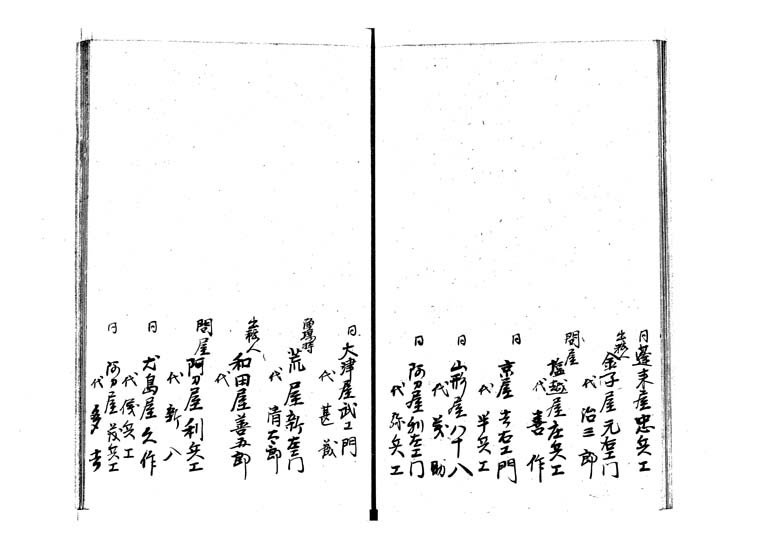 日 蓬莱屋忠兵エ
出格人
金子屋元右エ門
代 治三郎
問屋
塩越屋庄兵エ
代 喜作
日
京屋吉右エ門
代 半兵エ
日
山形屋八十八
代 茂助
日
阿刀屋利左エ門
代 弥兵エ
日 大津屋武エ門
代 甚蔵
荒屋新左エ門
代 清太郎
和田屋善五郎
代
問屋
阿刀屋利兵エ
代 新八
日
犬島屋久作
代 儀兵エ
日
阿刀屋茂兵エ
代 多吉